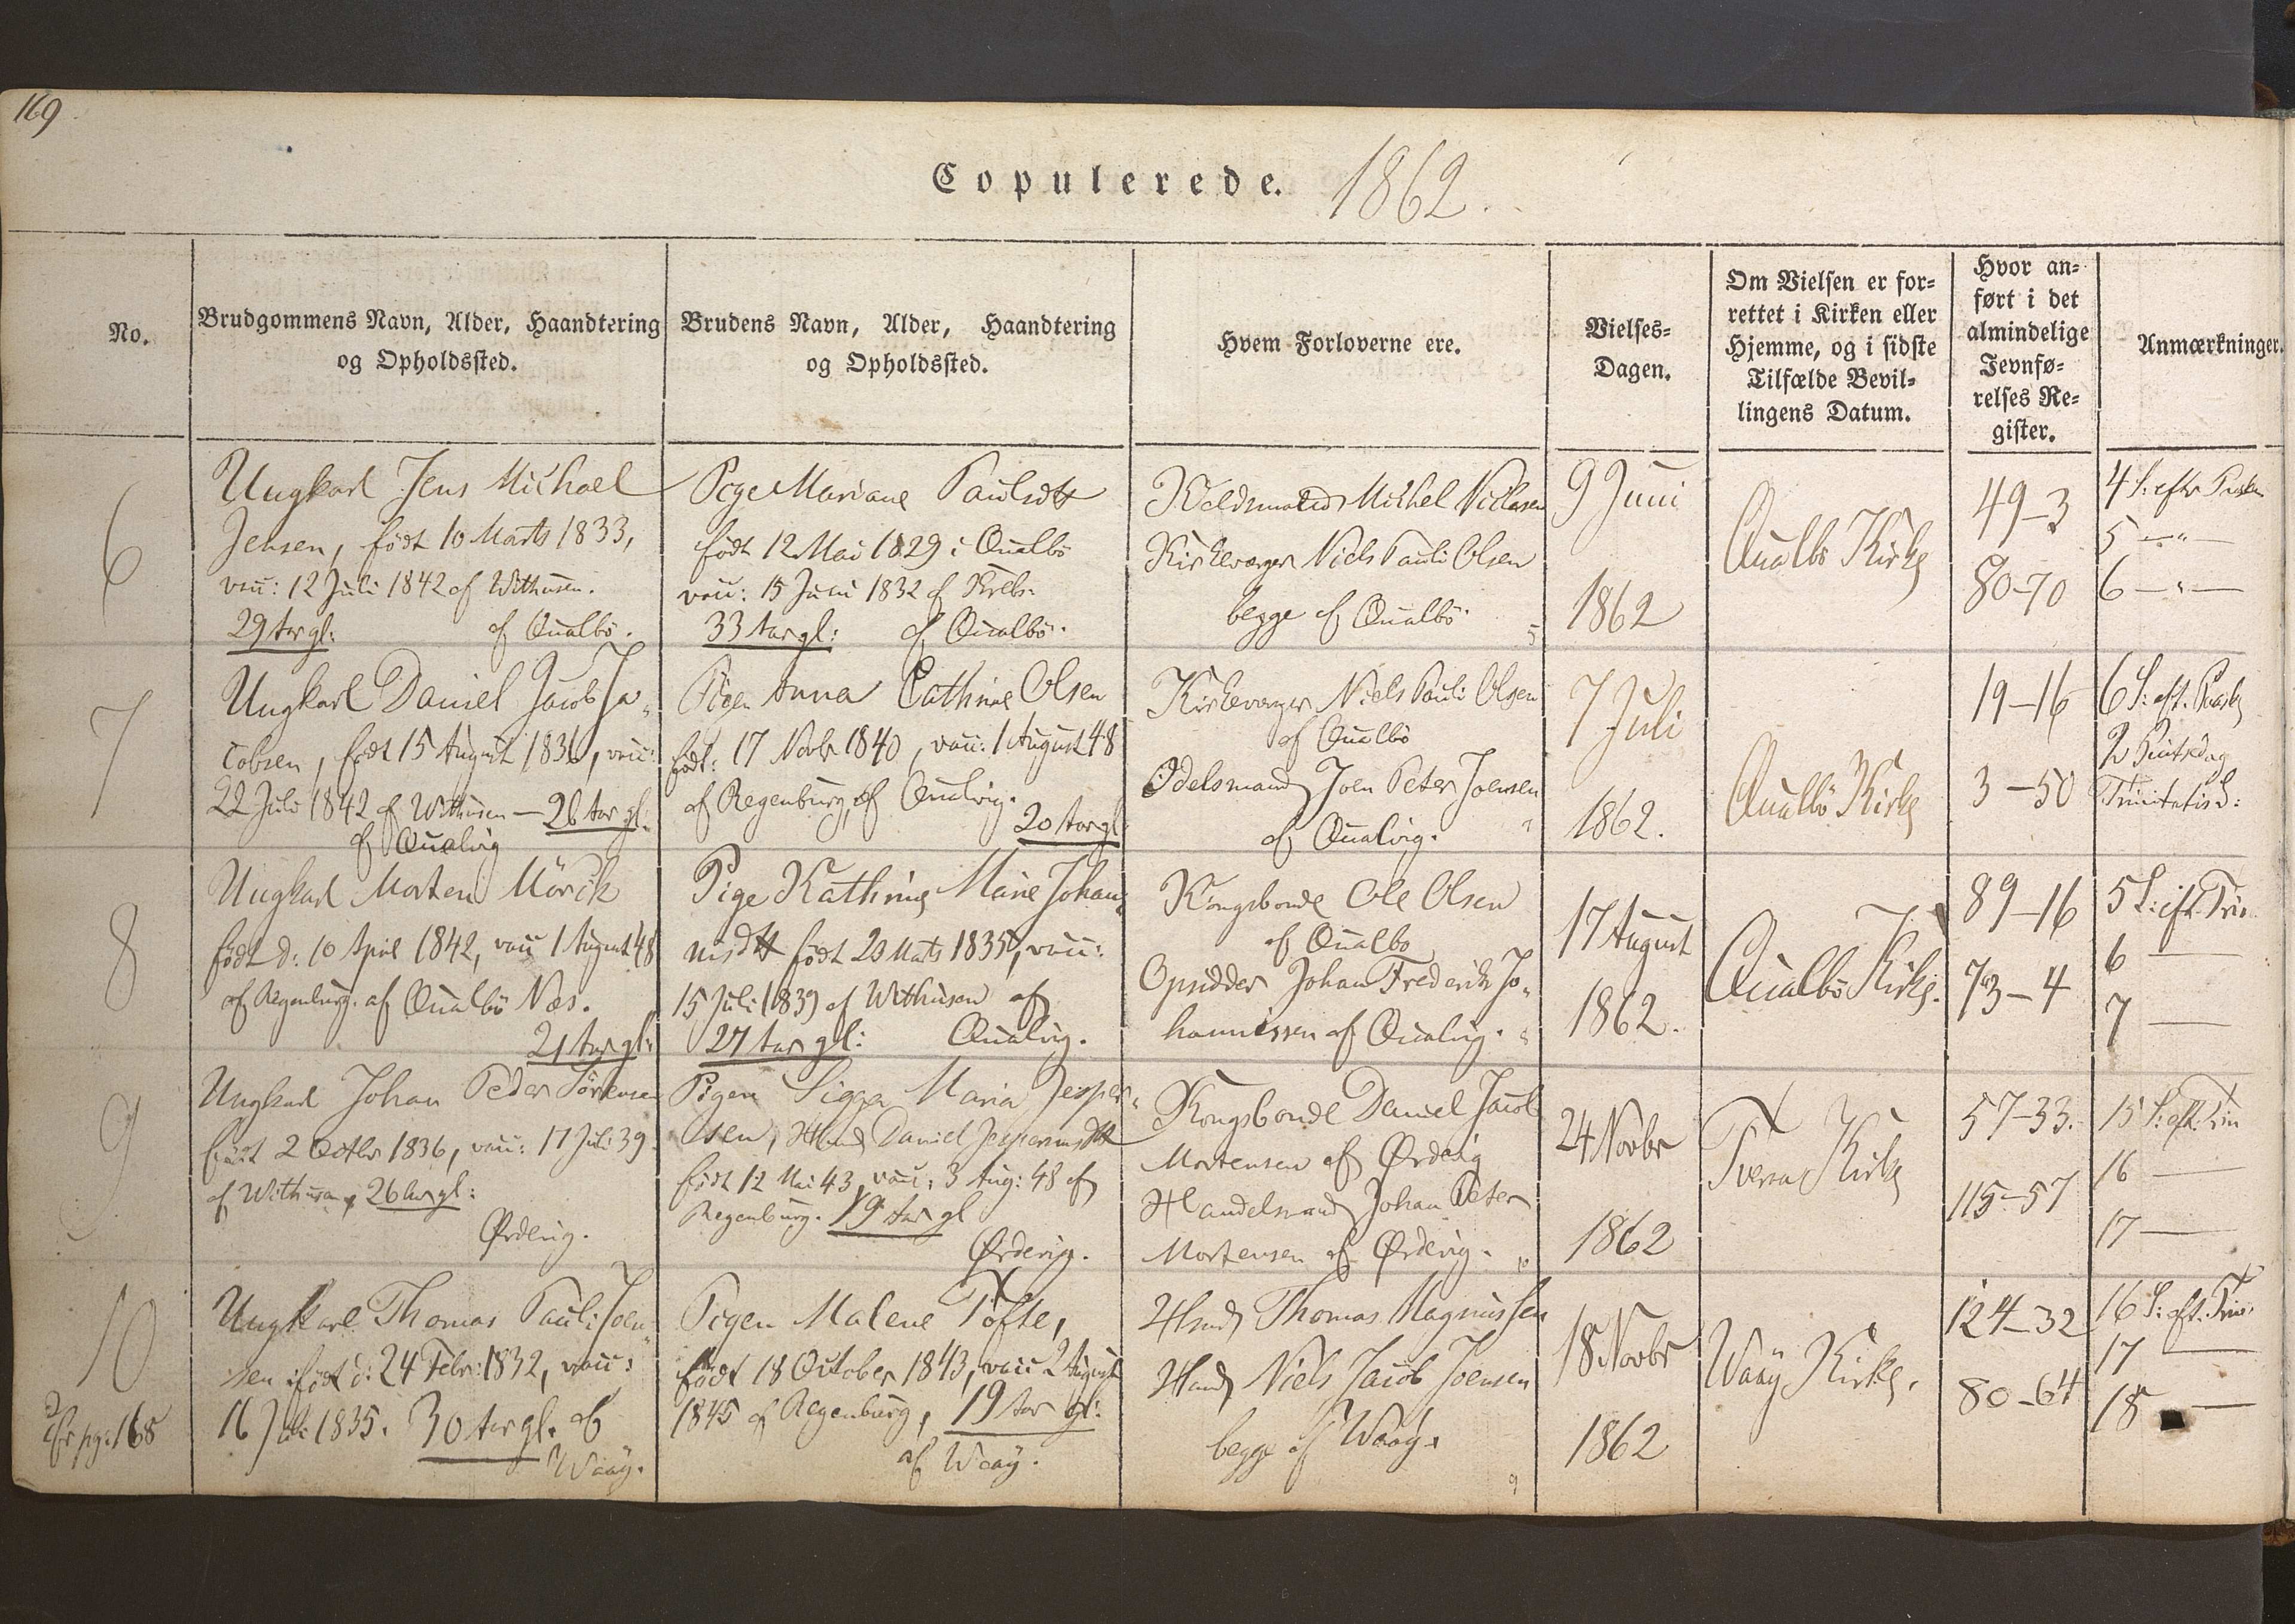 169
Copulerede. 1862.
No.
Brudgommens Navn, Alder, Haandtering
og Opholdssted.
Brudens Navn, Alder, Haandtering
og Opholdssted.
Hvem Forloverne ere.
Vielses-
Dagen.
Om Vielsen er for-
rettet i Kirken eller
Hjemme, og i sidste
Tilfælde Bevil-
lingens Datum.
Hvor an-
ført i det
almindelige
Jevnfø-
relses Re-
gister.
Anmærkninger.
6
Ungkarl Jens Michael
Jensen, født 10 Marts 1833,
vacc: 12 Juli 1842 af Withusen.
29 Aar gl: af Qualbö.
Pige Mariane Paulsdtt
født 12 Mai 1829 i Qualbö
vacc: 15 Juni 1832 af
33 Aar gl: af Qualbö.
Michel Nielsen
Kirkeværger Niels Pauli Olsen
begge af Qualbö.
9 Juni
1862
Qualbö Kirke
49-3
80-70
4 S: efter Paaske
5 — " —
6 — " —
7
Ungkarl Daniel Jacob Ja-
cobsen, født 15 August 1836, vacc:
22 Juli 1842 af Withusen — 26 Aar gl:
af Qualvig
Pigen Anna Cathrine Olsen
født: 17 Novbr 1840, vacc: 1 August 48
af Regenburg, af Qualvig.
20 Aar gl:
Kirkeværger Niels Pauli Olsen
af Qualbö
Odelsmand Joen Peter Joensen
af Qualvig.
7 Juli
1862.
Qualbö Kirke
19-16
3-50
6 S: eft. Paaske
2 Pintsedag
Trinitatis S:
8
Ungkarl Morten Mörck
født d: 10 April 1842, vacc 1 August 48
af Regenburg. af Qualbö Næs.
21 Aar gl:
Pige Kathrine Marie Johan-
nisdtt født 20 Marts 1835, vacc:
15 Juli 1839 af Withusen af
27 Aar gl: Qualvig.
Kongsbonde Ole Olsen
af Qualbö
Opsidder Johan Frederik Jo-
hannissen af Qualvig.
17 August
1862.
Qualbö Kirke.
89-16
73-4
5 S: eft. Trin.
6 —
7 —
9
Ungkarl Johan Peder Sörensen
født 2 Octbr 1836, vacc: 17 Juli 39
af Withusen, 26 Aar gl:
Ørdevig.
Pigen Sigga Maria Jesper-
sen, Hmd Daniel Jespersens Dtt
født 12 Mai 43, vacc: 3 Aug: 48 af
Regenburg. 19 Aar gl
Ørdevig.
Kongsbonde Daniel Jacob
Mortensen af Ørdevig
Handelsmand Johan Peter
Mortensen af Ørdevig.
24 Novbr
1862
Tveraa Kirke
57-33.
115-57
15 S: eft. Trin
16 —
17 —
10
Cfr pg: 168
Ungkarl Thomas Pauli Joen-
sen født d: 24 Febr: 1832, vacc:
16 Juli 1835. 30 Aar gl. af
Waaÿ.
Pigen Malene Tofte,
født 18 October 1843, vacc 2 August
1845 af Regenburg, 19 Aar gl:
af Waaÿ.
Hmd Thomas Magnussen
Hmd Niels Jacob Joensen
begge af Waaÿ.
18 Novbr
1862
Waaÿ Kirke.
124-32
80-64
16 S: eft. Trin.
17 —
18 —